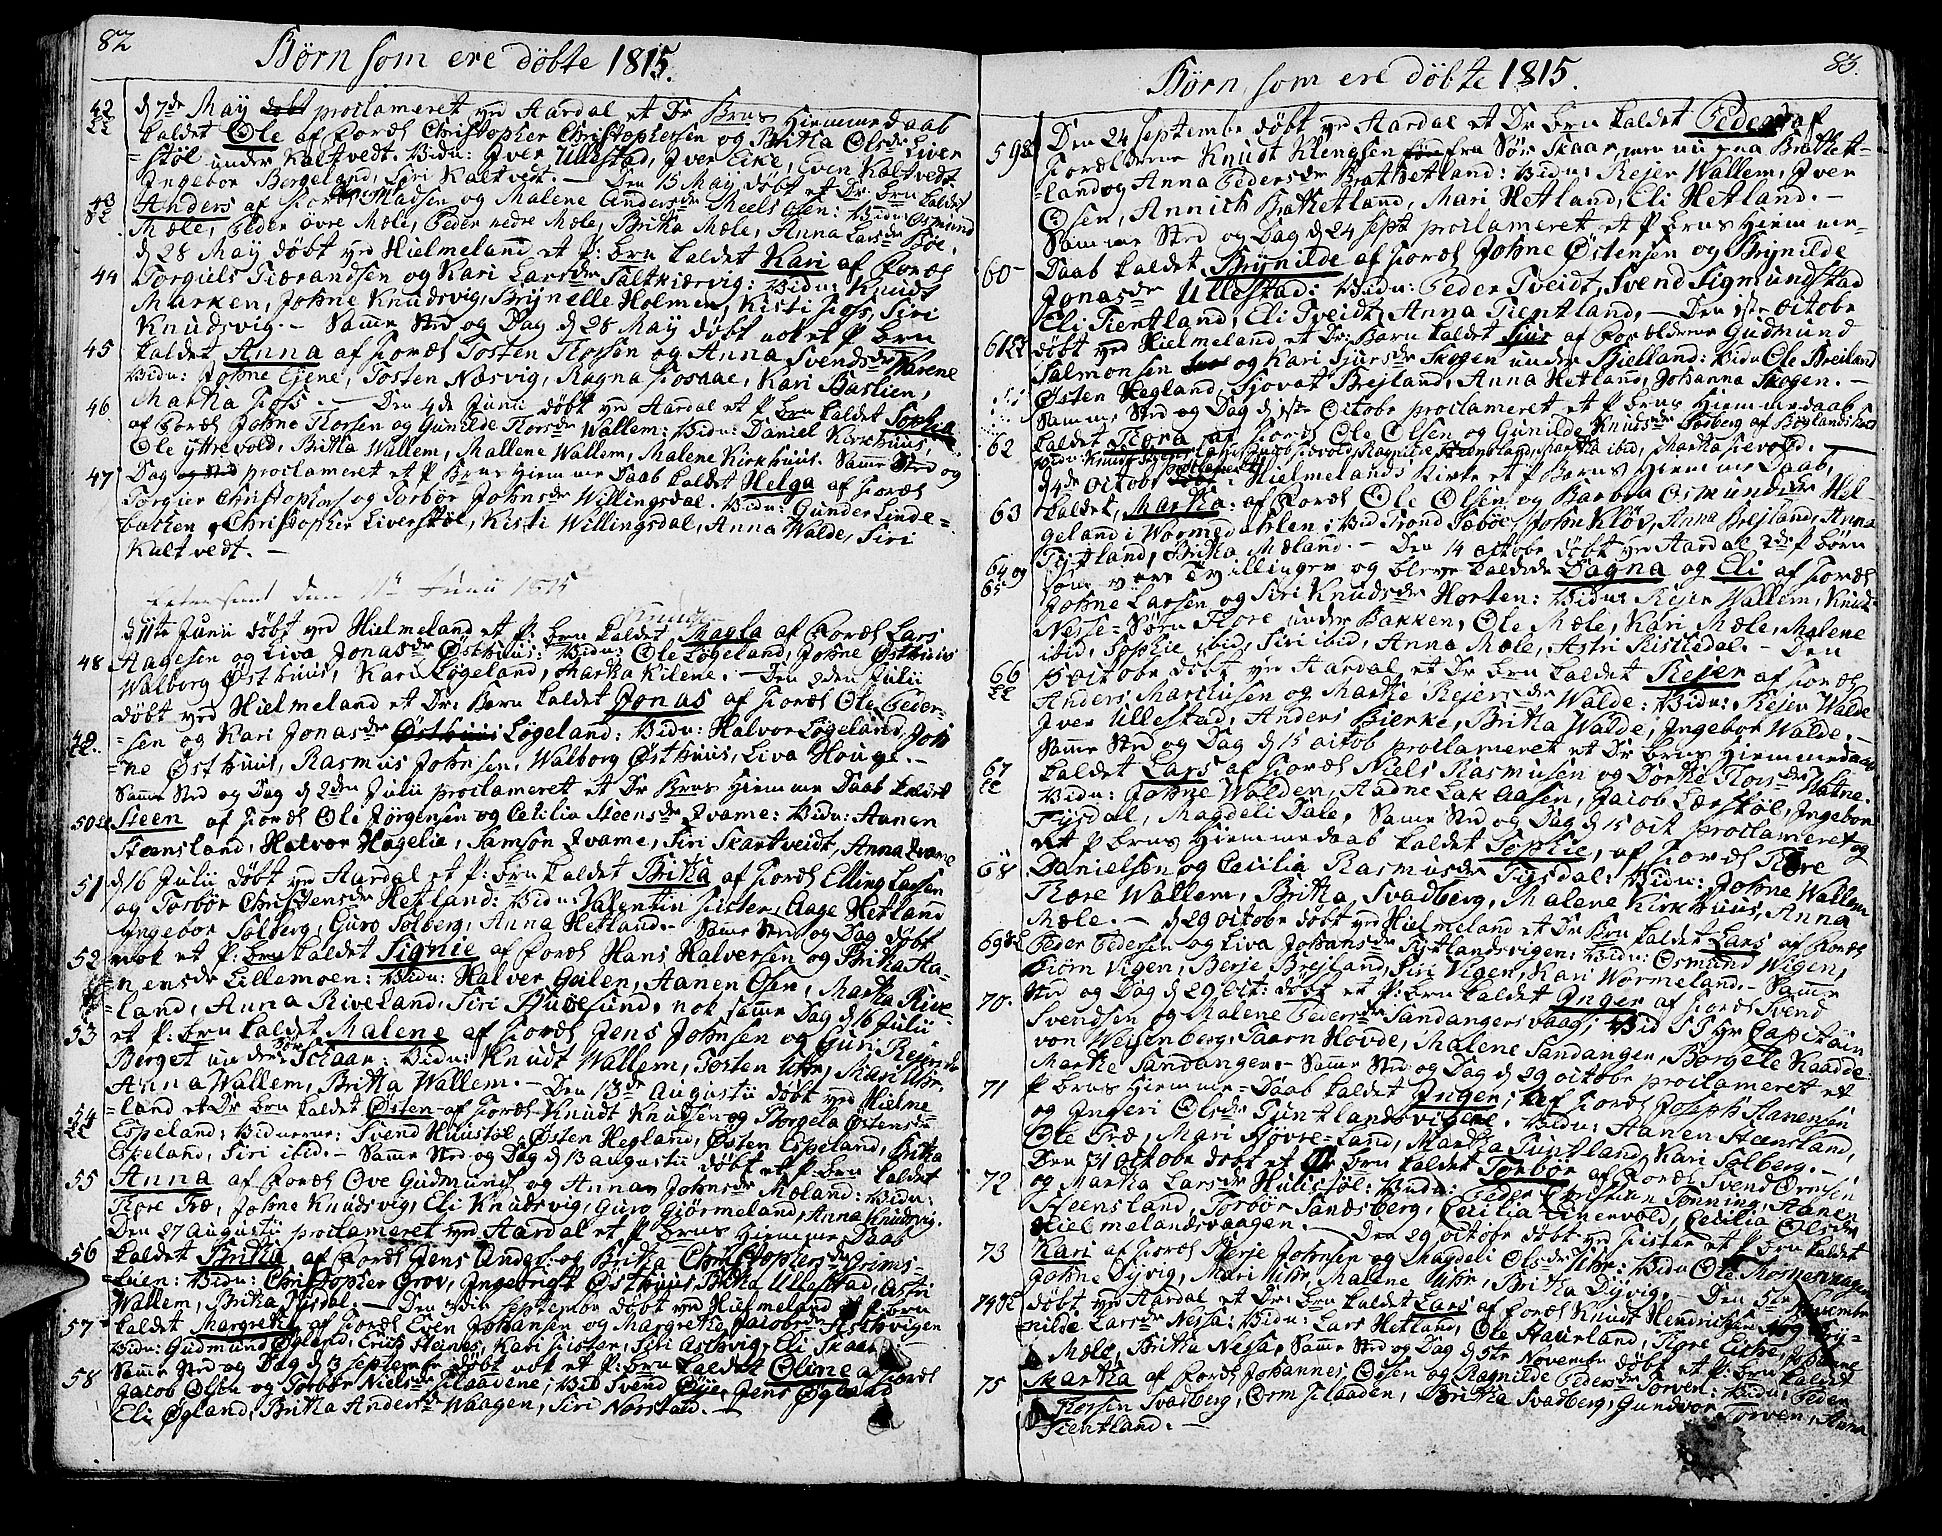 82
Børn som ere døbte 1815.
42 d 7de May døbt proclameret ved Aardal et Dr Brns Hiemmedaab
kaldet Ole af Foræl Christopher Christophersen og Britha Olsdr Liver
=støl under Kaltvedt. Vidn: Iver Ullestad, Iver Eike, Even Kaltvedt
Ingebor Bergeland, Siri Kaltvet. – Den 15 May døbt et Dr: brn kaldet
43 Anders af Foræl Madsen og Malene Andersdr Meelsosen: Vidn: Osmund
Mæle, Peder øvre Mæle, Peder nedre Mæle, Britha Mæle, Anna Larsdr Bøe,
d 28 May døbt ved Hielmeland et P: brn kaldet Kari af Foræl
44 Torguls Tiærandsen og Kari Larsdr Saltkiærvig: Vidn: Knudt
Marken, Johne Knudsvig, Brynelle Holmen, Kisti Fos, Siri
Knudsvig. – Samme Sted og Dag d 28 May døbt nok et P brn
45 kaldet Anna af Foræl Tosten Thorsen og Anna Svendsdr Warene
Vidn: Johne Ejene, Tosten Næsvig, Ragna Fosaae, Kari Baslien,
Martha Fos. – Den 4de Junii døbt ved Aardal et P brn kaldet Sophia
46 af Foræl Johne Thorsen og Gunilde Thorsdr Wallem: Vidn: Daniel Kirkhuus,
Ole yttrevold, Britha Wallem, Mallene Wallem, Malene Kirkhuus. Samme Sted og
47 Dag og Sted proclameret et P Brns Hiemme Daab kaldet Helga af Foræl
Torgier Christophers og Torbør Johnsdr Willingsdal. Vidn: Gunder Linde=
backen, Christopher Liverstøl, Kisti Willingsdal, Anna Walde, Siri
Kaltvedt. –
Efter sendt den 1te Junii 1815
d 11te Junii døbt ved Hielmeland et P: brn kaldet Magla af Foræl Lars
48 Aagesen og Liva Jonasdr Østhuus: Vidn: Ole Løgeland, Johne Østhuus
Walborg Østhuus, Kari Løgeland, Martha Kilene. – Den 2den Julii
døbt ved Hielmeland et Dr: Barn kaldet Jonas af Foræl Ole Peder=
49 =sen og Kari Jonasdr Østhuus Løgeland: Vidn: Halvor Løgeland, Joh
=ne Østhuus, Rasmus Johnsen, Walborg Østhuus, Liva Houge. –
Samme Sted og Dag d 2den Julii proclameret et Dr Brns Hiemme Daab kaldet
50 Steen af Foræl Ole Jørgensen og Cecilia Steensdr Ivame: Vidn: Aanen
Steensland, Halvor Hagelie, Samson Ivame, Siri Skartveidt, Anna Ivame
51 d 16 Julii døbt ved Aardal et P: brn kaldet Britha af Foræl Elling Larsen
og Torbør Christensdr Hetland: Vidn: Valentin Fister, Aage Hetland
Ingebor Solberg, Guro Solberg, Anna Hetland. – Samme Sted og Dag døbt
52 nok et P: brn kaldet Signie af Foræl Hans Halversen og Britha Aa=
=nensdr Lillemoen: Vidn: Halver Geilen, Aanen Osen, Martha Rive=
=land, Anna Riveland, Siri Hauesund, nok samme Dag d 16 Julii
53 et P: brn kaldet Malene af Foræl Jens Johnsen og Guri Rejersdr
Berget under Sør Schaar: Vidn: Knudt Wallem, Tosten Uhr, Mari Uhr,
Anna Wallem, Britha Wallem. – Den 13de Augustii døbt ved Hielme=
54 =land et Dr brn kaldet Østen af Foræl Knudt Knudsen og Borgela Østensdr
Espeland: Vidnerne: Svend Huustøl, Østen Hegland, Østen Espeland, Britha
Espeland, Siri ibid. – Samme Sted og Dag d 13 augustii døbt et P: brn kaldet
55 Anna af Foræl Ove Gudmunds og Anna Johnsdr Mæland: Vidn:
Thore Træ, Johne Knudsvig, Eli Knudsvig, Guro Giørmeland, Anna Knudsvig.
Den 27 Augustii proclameret ved Aardal et P: brns Hiemme Daab
56 kaldet Britha af Foræl Jens Anders: og Britha Christophersdr Grims=
=lien: Vidn: Christopher Grov, Ingebrigt Østhuus, Britha Ullestad, Astri
Wallem, Britha Tysdal. – Den 3die Septembr døbt ved Hielmeland et P: brn
57 kaldet Margretha af Foræl Even Johansen og Margretha Jacobsdr Aschvigen
Vidn: Gudmund Øgland, Erich Heines, Kari Fister, Siri Aschvig, Eli Skaar.
58 Samme Sted og Dag d 3 Septembr døbt nok et P: brn kaldet Oline af Foræl
Jacob Olsen og Torbør Nielsdr Flaadene; Vid Svend Øye, Jens Øgland
Eli Øgland, Britha Andersdr Waagen, Siri Norstad. –
83.
Børn som ere døbte 1815.
59 Den 24 Septembr døbt ved Aardal et Dr brn kaldet Peder af
Forældrene Knudt Klengsen fra Sør Skaar, men nu paa Brathet=
land og Anna Pedersdr Brathetland: Vidn: Rejer Wallem, Iver
Osen, Annich Brathetland, Mari Hetland, Eli Hetland. –
Samme Sted og Dag d 24 Sept proclameret et P brns Hiemme=
60 Daab kaldet Brynilde af Foræl Johne Østensen og Brynilde
Jonasdr Ullestad: Vidn: Peder Tveidt, Svend Sigmundstad
Eli Tientland, Eli Tveidt, Anna Tientland, – Den 1ste Octobr
61 døbt ved Hielmeland et Dr: Barn kaldet Siur af Forældrene Gudmund
Salmonsen og Kari Siursdr Skogen under Bielland: Vidn Ole Breiland
Østen Hegland, Sjovat Brejland, Anna Hetland, Johanna Skogen. –
Samme Sted og Dag d 1ste Octobr proclameret et P brns Hiemmedaab
62 kaldet Thora af Foræl Ole Olsen og Gunilde Knudsdr Solberg af
ibid, Martha Fievold. –
d 4de Octobr proclameret i Hielmelands Kirke et P Barns Hiemme Daab,
63 kaldet, Martha. af Foræl Ole Olsen og Barbra Osmundsdr Hel=
geland i Wormedahlen: Vid Trond Sæbøe, John Kløv, Anna Brejland, Anna
Tystland, Britha Mæland. – Den 14 Octobr døbt ved Aardal 2de P børn
64 og 65 som vare Tvillinger og bleve kaldede Dagna og Eli af Foræl
Johne Larsen og Siri Knudsdr Horten: Vidn: Rejer Wallem, Knudt
Nesse=Søen Thore under Bakken, Ole Mæle, Kari Mæle, Malene
ibid, Sophie ibid, Siri ibid, Anna Mæle, Astri Tistledal. – Den
66 15 Octobr døbt ved Aardal et Dr brn kaldet Rejer af Foræl
Anders Marthusen og Marthe Rejersdr Walde: Vidn: Rejer Walde
Iver Ullestad, Anders Bierke, Britha Walde, Ingebor Walde. –
Samme Sted og Dag d 15 octob proclameret et Dr brns Hiemmedaab
67 kaldet Lars af Foræl Niels Rasmusen og Dorthe Thorsdr Watne.
Vidn: Johne Walden, Aadne Lak Aasen, Jacob Lærstøl, Ingebor
Tysdal, Magdeli Dale, Samme Sted og Dag d 15 oct proclameret og
et P brns Hiemmedaab kaldet Sophie, af Foræl Thore
68 Danielsen og Cecilia Rasmusdr Tigsdal: Vidn: Johne Wallem
Thore Wallem, Britha Svadberg, Malene Kirkhuus, Anna
Mæle. – d 29 octobr døbt ved Hielmeland et Dr Brn kaldet Lars af Foræl
69 Peder Pedersen og Liva Johansdr Tystlandsvigen: Vidn: Osmund Wigen,
Biørn Vigen, Berje Brejland, Siri Vigen, Kari Wormeland. – Samme
70. Sted og Dag d 29 Oct: døbt et P: brn kaldet Inger af Foræl Svend
Svendsen og Malene Pedersdr Sandangersvaag; Vid S T Hr Capitain
von Weisenberg, Taarn Hovde, Malene Sandangen, Borgele Kaadde
Marthe Sandangen. – Samme Sted og Dag d 29 octobr proclameret et
71 P brns Hiemme=Daab kaldet Inger; af Foræl Joseph Aanensen
og Ingeri Olsdr Tuntlandsvigene. Vidn: Aanen Steensland,
Ole Træ, Mari Øvre=Land, Martha Tuntland, Kari Solberg. –
Den 31 Octobr døbt et P brn kaldet Torbør af Foræl Svend Ormsen
72 og Martha Larsdr Hulichøl: Vidn: Peder Christian Tønning, Aanen
Steensland, Torbør Sandsberg, Cecilia Einervold, Cecilia Olsdr
Hielmelandsvaagen. – Den 29 octobr døbt ved Fister et P brn kaldet
73 Kari af Foræl Berje Johnsen og Magdeli Olsdr Uhr: Vidn Ole
Johne Dyvig, Mari Uhr, Malene Uhr, Britha Dyvig. – Den 5te Novembr
74 døbt ved Aardal et Dr: brn kaldet Lars af Foræl Knudt Hendrichsen og Bry=
=nilde Larsdr Nessa: Vidn: Lars Hetland, Ole Hauvland, Thore Eiche, Johanne
Mæle, Britha Nessa, Samme Sted og Dag d 5te Novembr døbt et P: brn kaldet
75 Martha af Foræl Johannes Ossen og Ragnilde Pedersdr Torven: Vidn: Peder
Thorsen Svadberg, Orm Flaaden, Britha Svadberg, Gundvor Torven, Anna
Tientland. –